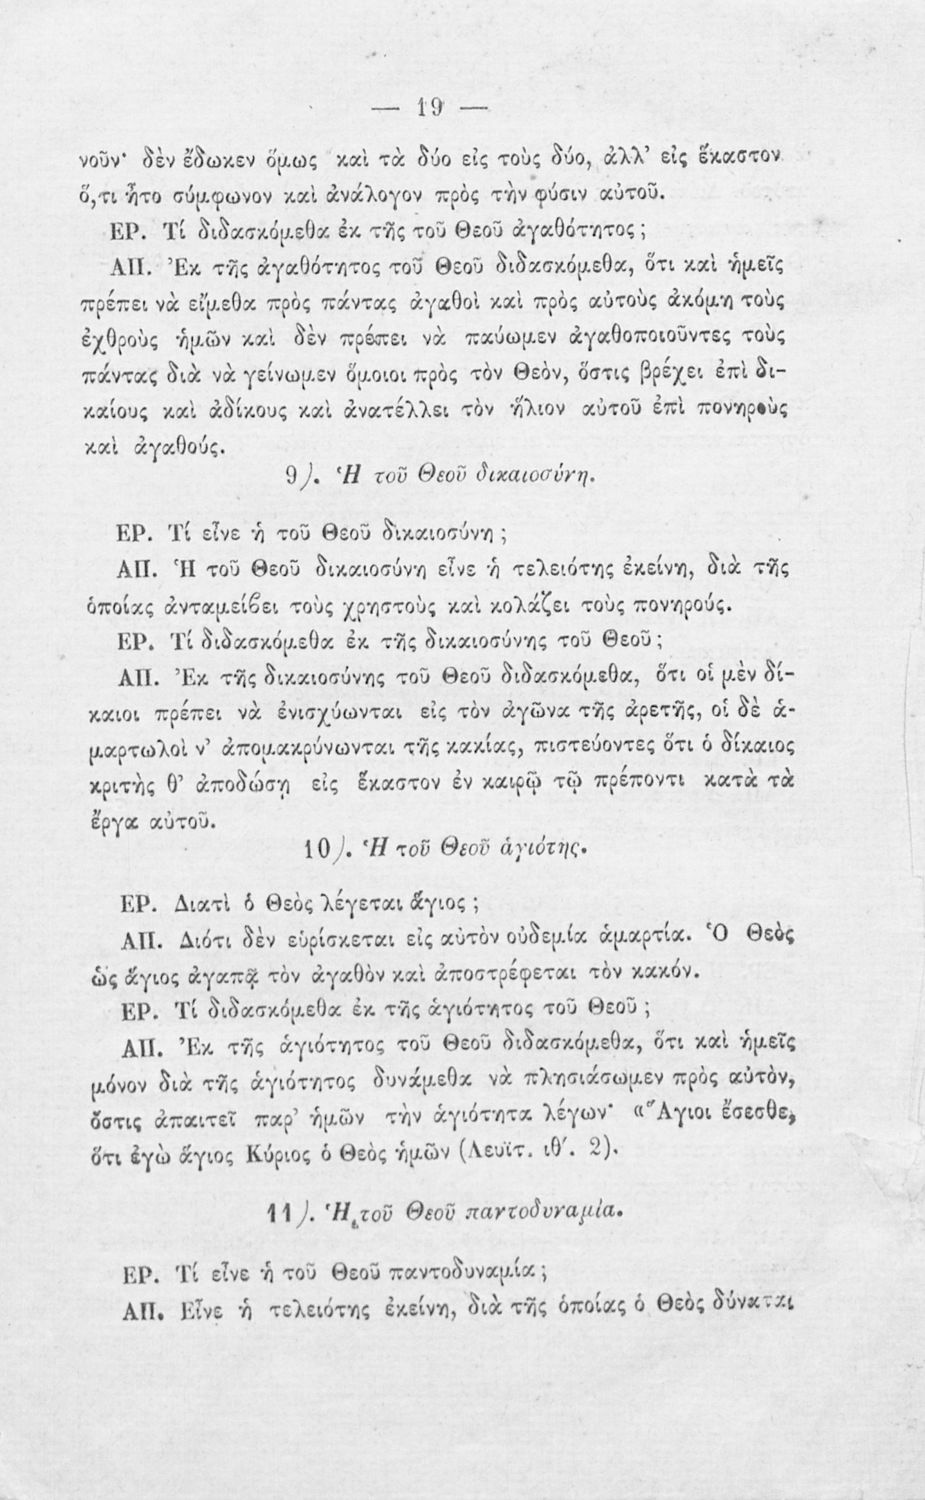 — 19 —
νοῦν· δὲν ἔδωκεν ὅμως καὶ τὰ δύο εἰς τοὺς δύο, ἀλλ' εἰς ἕκαστον
ὅ,τι ἦτο σύμφωνον καὶ ἀνάλογον πρὸς τὴν φύσιν αὐτοῦ.
ΕΡ. Τί διδασκόμεθα ἐκ τῆς τοῦ Θεοῦ ἀγαθότητος;
ΑΠ. Ἐκ τῆς ἀγαθότητος τοῦ Θεοῦ διδασκόμεθα, ὅτι καὶ ἡμεῖς
πρέπει νὰ εἴμεθα πρὸς πάντας ἀγαθοὶ καὶ πρὸς αὐτοὺς ἀκόμη τοὺς
ἐχθροὺς ἡμῶν καὶ δὲν πρέπει νὰ παύωμεν ἀγαθοποιοῦντες τοὺς
πάντας διὰ νὰ γείνωμεν ὅμοιοι πρὸς τὸν Θεὸν, ὅστις βρέχει ἐπὶ δι-
καίους καὶ ἀδίκους καὶ ἀνατέλλει τὸν ἥλιον αὐτοῦ ἐπὶ πονηροὺς
καὶ ἀγαθούς.
9). Ἡ τοῦ Θεοῦ δικαιοσύνη.
ΕΡ. Τί εἶνε ἡ τοῦ Θεοῦ δικαιοσύνη;
ΑΠ. Ἡ τοῦ Θεοῦ δικαιοσύνη εἶνε ἡ τελειότης ἐκείνη, διὰ τῆς
ὁποίας ἀνταμείβει τοὺς χρηστοὺς καὶ κολάζει τοὺς πονηρούς.
ΕΡ. Τί διδασκόμεθα ἐκ τῆς δικαιοσύνης τοῦ Θεοῦ;
ΑΠ. Ἐκ τῆς δικαιοσύνης τοῦ Θεοῦ διδασκόμεθα, ὅτι οἱ μὲν δί-
καιοι πρέπει νὰ ἐνισχύωνται εἰς τὸν ἀγῶνα τῆς ἀρετῆς, οἱ δὲ ἁ-
μαρτωλοὶ ν' ἀπομακρύνωνται τῆς κακίας, πιστεύοντες ὅτι ὁ δίκαιος
κριτὴς θ' ἀποδώσῃ εἰς ἕκαστον ἐν καιρῷ τῷ πρέποντι κατὰ τὰ
ἔργα αὐτοῦ.
10). Ἡ τοῦ Θεοῦ ἁγιότης.
ΕΡ. Διατὶ ὁ Θεὸς λέγεται ἅγιος;
ΑΠ. Διότι δὲν εὑρίσκεται εἰς αὐτὸν οὐδεμία ἁμαρτία. Ὁ Θεὸς
ὡς ἅγιος ἀγαπᾷ τὸν ἀγαθὸν καὶ ἀποστρέφεται τὸν κακόν.
ΕΡ. Τί διδασκόμεθα ἐκ τῆς ἁγιότητος τοῦ Θεοῦ;
ΑΠ. Ἐκ τῆς ἁγιότητος τοῦ Θεοῦ διδασκόμεθα, ὅτι καὶ ἡμεῖς
μόνον διὰ τῆς ἁγιότητος δυνάμεθα νὰ πλησιάσωμεν πρὸς αὐτὸν,
ὅστις ἀπαιτεῖ παρ' ἡμῶν τὴν ἁγιότητα λέγων· «Ἅγιοι ἔσεσθε,
ὅτι ἐγὼ ἅγιος Κύριος ὁ Θεὸς ἡμῶν (Λευϊτ. ιθ΄. 2).
11). Ἡ τοῦ Θεοῦ παντοδυναμία.
ΕΡ. Τί εἶνε ἡ τοῦ Θεοῦ παντοδυναμία;
ΑΠ. Εἶνε ἡ τελειότης ἐκείνη, διὰ τῆς ὁποίας ὁ Θεὸς δύναται